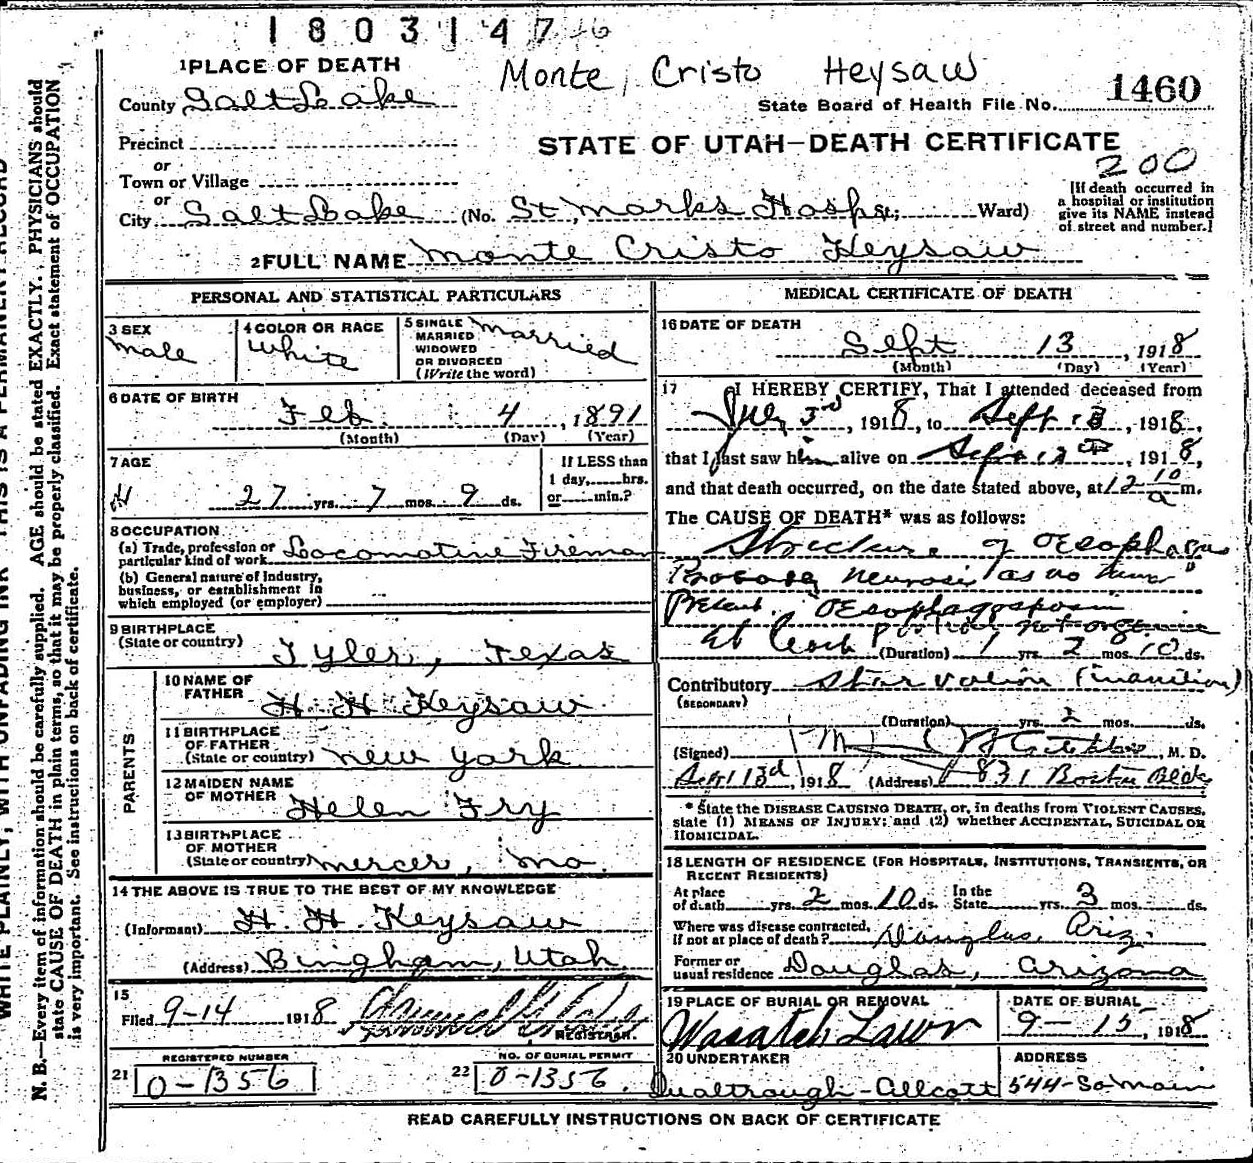 1803147
Monte Cristo Heysaw
1 PLACE OF DEATH
County Salt Lake
State Board of Health File No. 1460
Precinct
or
Town or Village
or
STATE OF UTAH—DEATH CERTIFICATE
200
City Salt Lake (No. St Marks Hosp St.; Ward)
[If death occurred in
a hospital or institution
give its NAME instead
of street and number.]
2 FULL NAME Monte Cristo Heysaw
PERSONAL AND STATISTICAL PARTICULARS
3 SEX
male
4 COLOR OR RACE
White
5 SINGLE
MARRIED
WIDOWED
OR DIVORCED
(Write the word)
Married
6 DATE OF BIRTH
Feb. 4, 1891
(Month) (Day) (Year)
7 AGE
27 yrs. 7 mos. 9 ds.
If LESS than
1 day, hrs.
or min.?
8 OCCUPATION
(a) Trade, profession or
particular kind of work Locomotive Fireman
(b) General nature of Industry,
business, or establishment in
which employed (or employer)
9 BIRTHPLACE
(State or country) Tyler, Texas
PARENTS
10 NAME OF
FATHER H. H. Heysaw
11 BIRTHPLACE
OF FATHER
(State or country) New York
12 MAIDEN NAME
OF MOTHER Helen Fry
13 BIRTHPLACE
OF MOTHER
(State or country) Mercer, Mo.
14 THE ABOVE IS TRUE TO THE BEST OF MY KNOWLEDGE
(Informant) H. H. Heysaw
(Address) Bingham, Utah
15
Filed 9-14 1918
REGISTRAR.
REGISTERED NUMBER
21 0-1356
NO. OF BURIAL PERMIT
22 0-1356
MEDICAL CERTIFICATE OF DEATH
16 DATE OF DEATH
Sept 13, 1918
(Month) (Day) (Year)
17 I HEREBY CERTIFY, That I attended deceased from
July 3rd, 1918, to Sept 13, 1918,
that I last saw him alive on Sept 12th, 1918,
and that death occurred, on the date stated above, at 12 10 a m.
The CAUSE OF DEATH* was as follows:
Stricture of Oesophagus
Probably neurosis as no tumor
Present. Oesophagospasm
at least partial not organic
(Duration) 1 yrs. 2 mos. 10 ds.
Contributory Starvation (inanition)
(SECONDARY)
(Duration) yrs. 2 mos. ds.
(Signed) M. D.
Sept 13d, 1918 (Address) 831 Boston Block
* State the DISEASE CAUSING DEATH, or, in deaths from VIOLENT CAUSES,
state (1) MEANS OF INJURY; and (2) whether ACCIDENTAL, SUICIDAL OR
HOMICIDAL.
18 LENGTH OF RESIDENCE (FOR HOSPITALS, INSTITUTIONS, TRANSIENTS, OR
RECENT RESIDENTS)
At place
of death yrs. 2 mos. 10 ds.
In the
State yrs. 3 mos. ds.
Where was disease contracted,
if not at place of death? Douglas, Ariz.
Former or
usual residence Douglas, Arizona
19 PLACE OF BURIAL OR REMOVAL
Wasatch Lawn
DATE OF BURIAL
9-15, 1918
20 UNDERTAKER
Qualtrough-Allcott
ADDRESS
544-So Main
READ CAREFULLY INSTRUCTIONS ON BACK OF CERTIFICATE
WRITE PLAINLY, WITH UNFADING INK—THIS IS A PERMANENT RECORD
N. B.—Every item of information should be carefully supplied. AGE should be stated EXACTLY. PHYSICIANS should
state CAUSE OF DEATH in plain terms, so that it may be properly classified. Exact statement of OCCUPATION
is very important. See instructions on back of certificate.